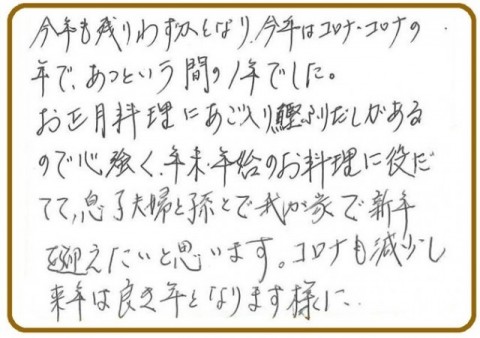 今年も残りわずかとなり、今年はコロナ・コロナの
年で、あっという間の1年でした。
お正月料理にあご入り鰹ふりだしがある
ので心強く、年末・年始のお料理に役だ
てて、息子夫婦と孫とで我が家で新年
迎えたいと思います。コロナも減少し
来年は良き年となります様に…